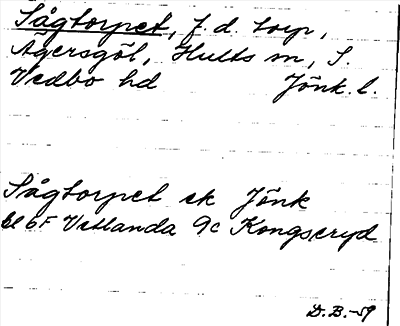 Sågtorpet, f.d. torp,
Agersgöl, Hults sn, S.
Vedbo hd Jönk. l.
Sågtorpet ek Jönk
bl 6F Vetlanda 9c Kongseryd
D.B.-59